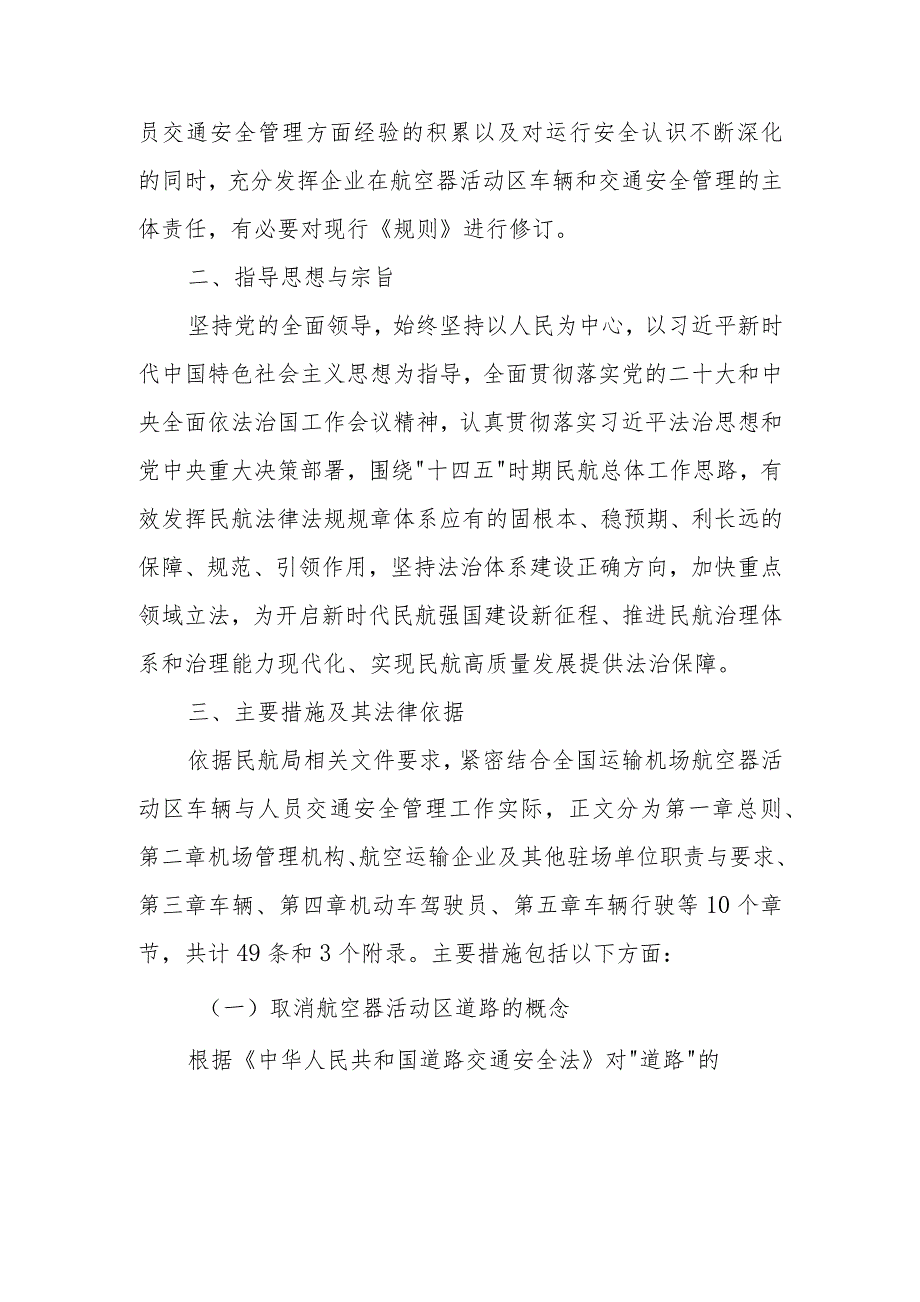 员交通安全管理方面经验的积累以及对运行安全认识不断深化
的同时，充分发挥企业在航空器活动区车辆和交通安全管理的主
体责任，有必要对现行《规则》进行修订。
二、指导思想与宗旨
坚持党的全面领导，始终坚持以人民为中心，以习近平新时
代中国特色社会主义思想为指导，全面贯彻落实党的二十大和中
央全面依法治国工作会议精神，认真贯彻落实习近平法治思想和
党中央重大决策部署，围绕"十四五"时期民航总体工作思路，有
效发挥民航法律法规规章体系应有的固根本、稳预期、利长远的
保障、规范、引领作用，坚持法治体系建设正确方向，加快重点
领域立法，为开启新时代民航强国建设新征程、推进民航治理体
系和治理能力现代化、实现民航高质量发展提供法治保障。
三、主要措施及其法律依据
依据民航局相关文件要求，紧密结合全国运输机场航空器活
动区车辆与人员交通安全管理工作实际，正文分为第一章总则、
第二章机场管理机构、航空运输企业及其他驻场单位职责与要求、
第三章车辆、第四章机动车驾驶员、第五章车辆行驶等10个章
节，共计49条和3个附录。主要措施包括以下方面：
（一）取消航空器活动区道路的概念
根据《中华人民共和国道路交通安全法》对"道路"的